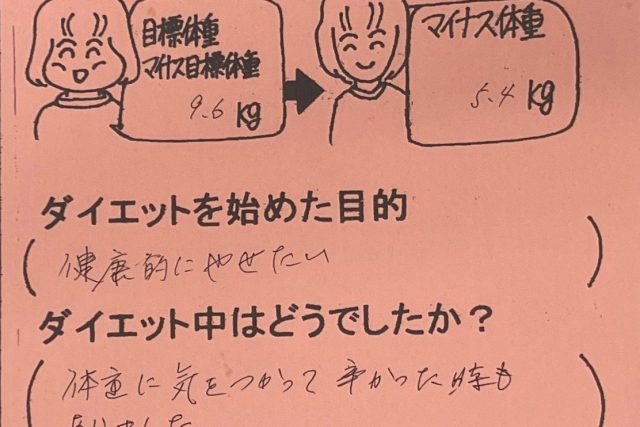 目標体重
マイナス目標体重
9.6 kg
マイナス体重
5.4 kg
ダイエットを始めた目的
健康的にやせたい
ダイエット中はどうでしたか？
体重に気をつかって辛かった時も
ありました